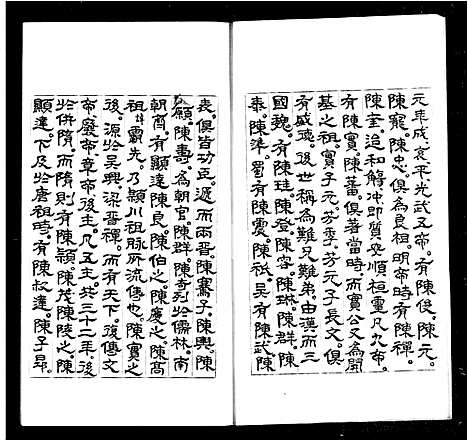 元年成哀平光武五帝。有陳俊。陳元。
陳寵。陳忠。俱為良相。明帝時有陳禪。
陳奎。迨和解沖即質安順桓靈凡九帝。
有陳實。陳蕃。俱著當時。而實公又為開
基之祖。實子元芳。季芳。元子長文。俱
有盛德。後世稱為難兄難弟。由漢而三
國魏。有陳珪。陳登。陳容。陳琳。陳群。陳
泰。陳準。蜀有陳震。陳祗。吳有陳武。陳
表。俱皆功臣。遞而兩晋。陳騫子。陳輿。陳
願。陳壽。為朝官。陳群。陳奇列於儒林。南
朝齊。有顯達。陳良。陳伯之。陳慶之。陳高
祖霸先。乃潁川祖脈所流傳也。陳寔之
後。源於吳興。梁晋禪。而有天下。後傳文
帝。廢帝。章帝。後主。凡五主。共三十二年。後
於併隋。而隋則有陳穎。陳茂。陳陵之。陳
顯達。下及於唐祖時。有陳叔達。陳子昂。